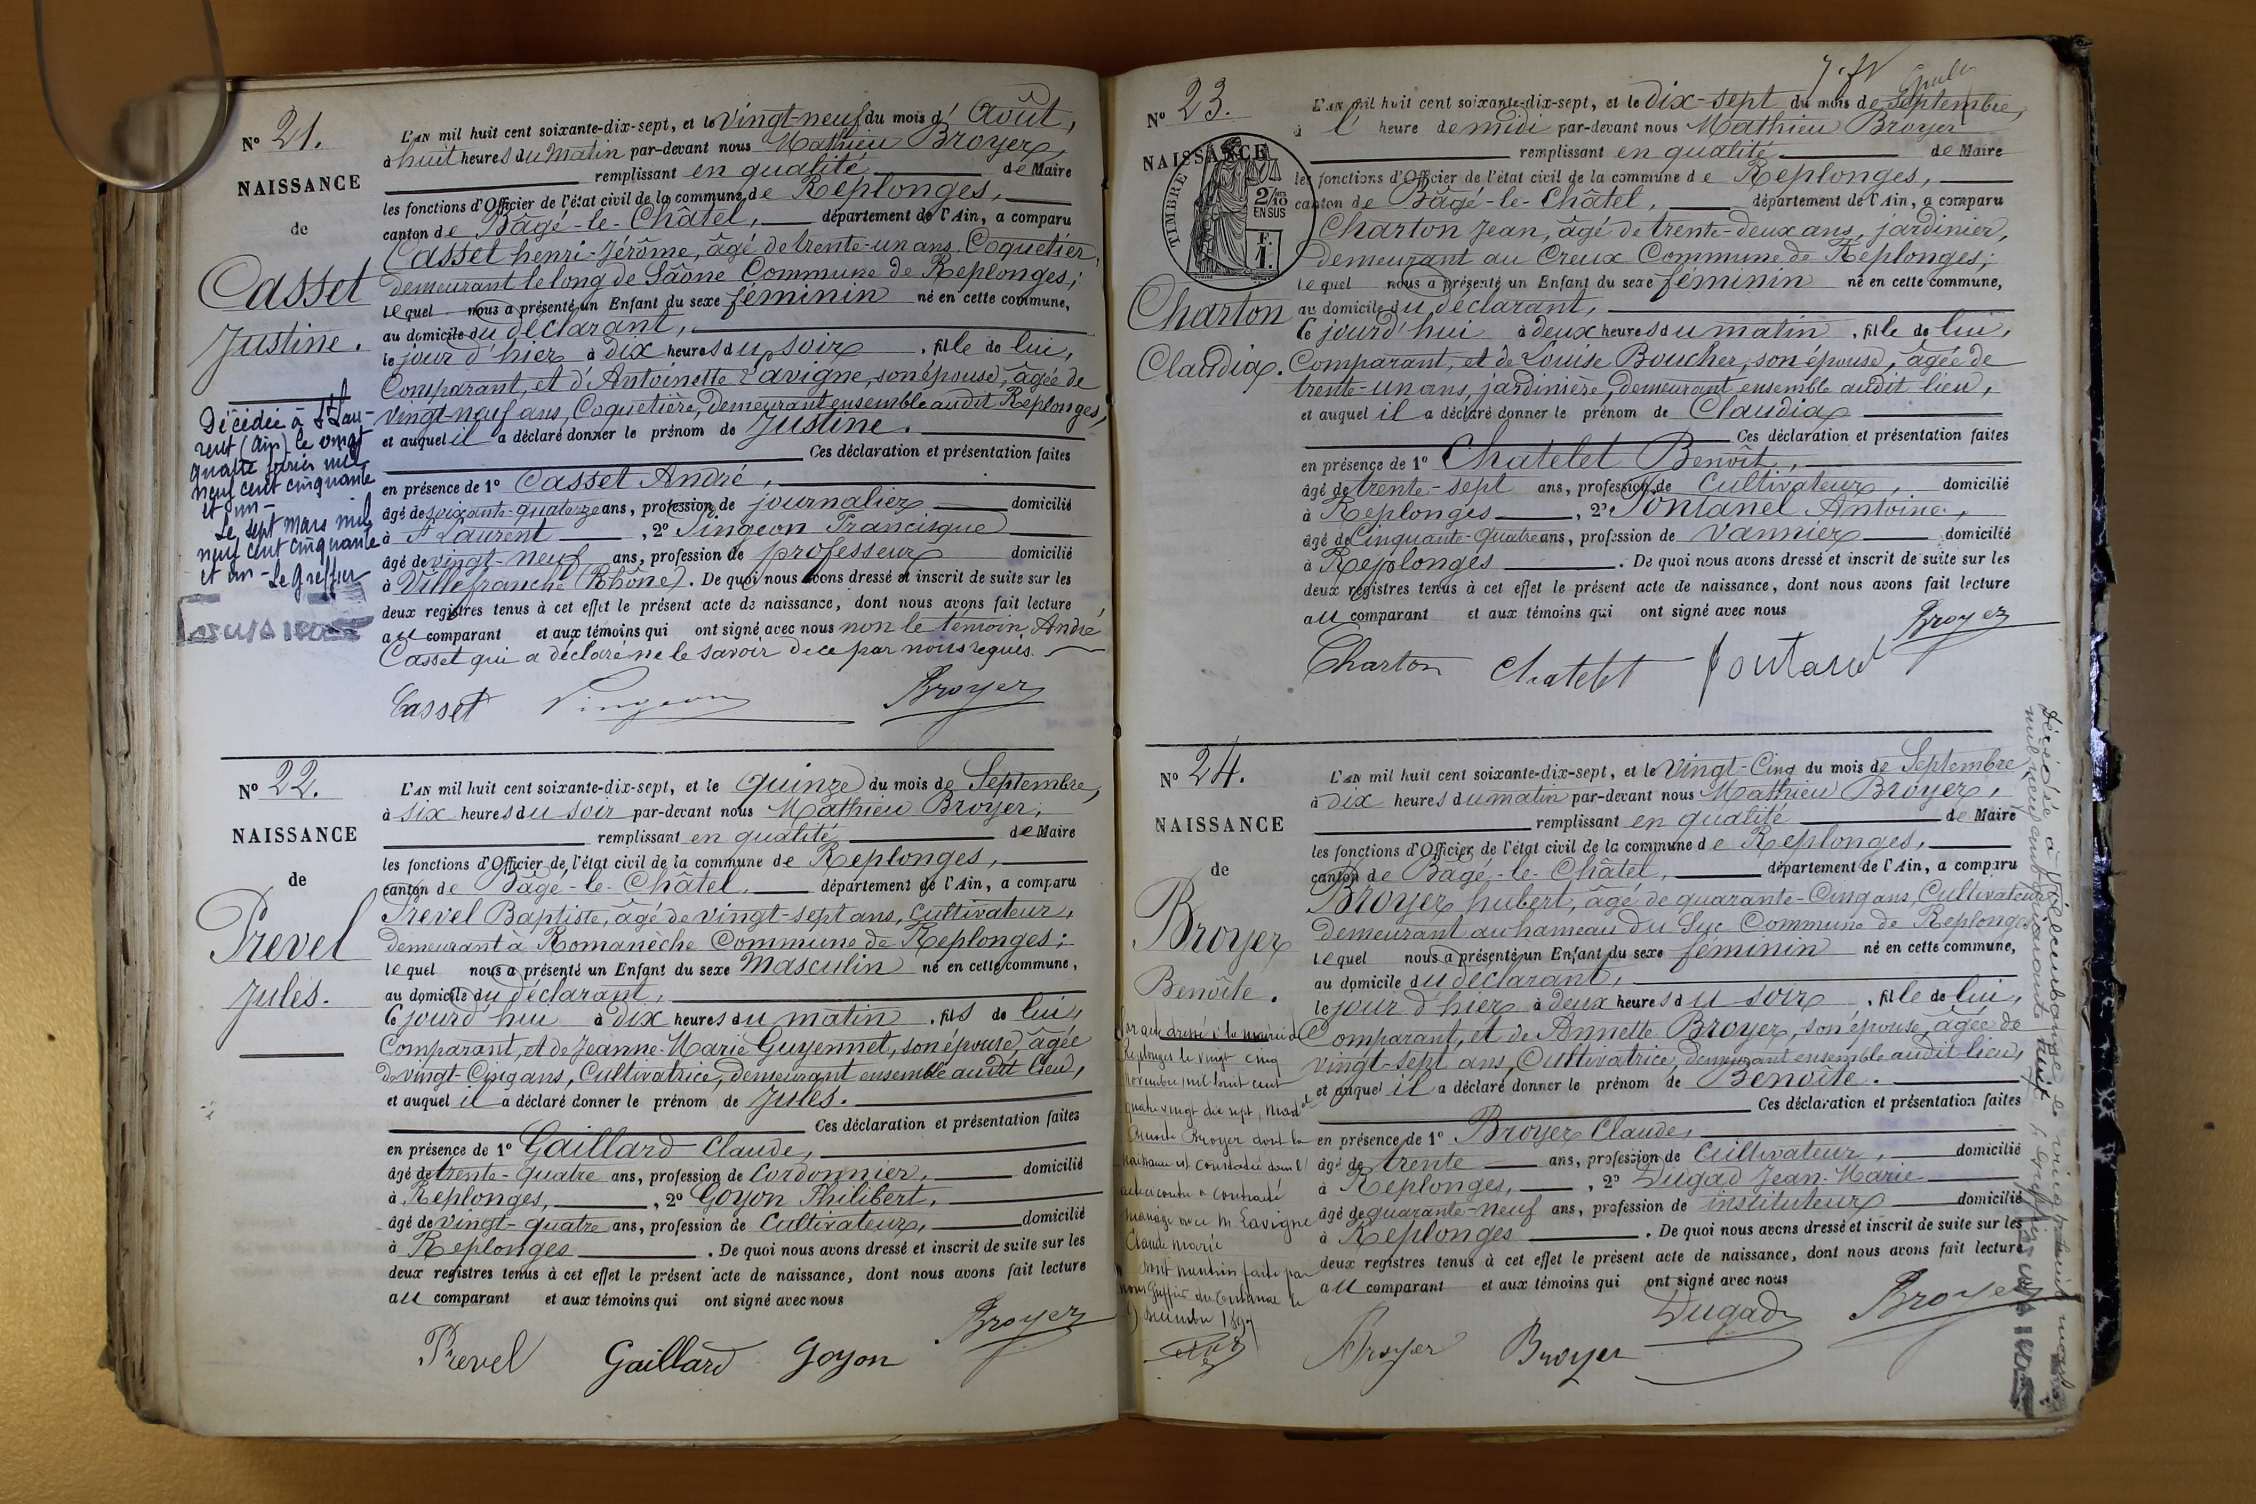 N° 21.
NAISSANCE
de
Casset
Justine.
Décédée à St Lau-
rent (Ain) le vingt
quatre février mil
neuf cent cinquante
et un -
Le sept mars mil
neuf cent cinquante
et un - Le Greffier
L'AN mil huit cent soixante-dix-sept, et le vingt-neuf du mois d'Août,
à huit heures du matin par-devant nous Mathieu Broyer,
remplissant en qualité de Maire
les fonctions d'Officier de l'état civil de la commune de Replonges,
canton de Bâgé-le-Châtel, département de l'Ain, a comparu
Casset henri-Jérôme, âgé de trente-un ans, Coquetier,
demeurant le long de Saône Commune de Replonges;
lequel nous a présenté un Enfant du sexe féminin né en cette commune,
au domicile du déclarant,
le jour d'hier à dix heures du soir, fille de lui,
Comparant, et d'Antoinette Lavigne, son épouse, âgée de
vingt-neuf ans, Coquetière, demeurant ensemble audit Replonges,
et auquel il a déclaré donner le prénom de Justine.
Ces déclaration et présentation faites
en présence de 1° Casset André,
âgé de soixante-quatorze ans, profession de journalier domicilié
à St Laurent, 2° Pingeon Francisque
âgé de vingt-neuf ans, profession de professeur domicilié
à Villefranche (Rhône). De quoi nous avons dressé et inscrit de suite sur les
deux registres tenus à cet effet le présent acte de naissance, dont nous avons fait lecture
au comparant et aux témoins qui ont signé avec nous non le témoin André
Casset qui a déclaré ne le savoir de ce par nous requis.
Casset Pingeon Broyer
N° 22.
NAISSANCE
de
Prevel
Jules.
L'AN mil huit cent soixante-dix-sept, et le quinze du mois de Septembre,
à six heures du soir par-devant nous Mathieu Broyer,
remplissant en qualité de Maire
les fonctions d'Officier de l'état civil de la commune de Replonges,
canton de Bâgé-le-Châtel, département de l'Ain, a comparu
Prevel Baptiste, âgé de vingt-sept ans, Cultivateur,
demeurant à Romanèche Commune de Replonges;
lequel nous a présenté un Enfant du sexe Masculin né en cette commune,
au domicile du déclarant,
ce jourd'hui à dix heures du matin, fils de lui,
Comparant, et de Jeanne-Marie Guyennet, son épouse, âgée
de vingt-cinq ans, Cultivatrice, demeurant ensemble audit lieu,
et auquel il a déclaré donner le prénom de Jules.
Ces déclaration et présentation faites
en présence de 1° Gaillard Claude,
âgé de trente-quatre ans, profession de Cordonnier, domicilié
à Replonges, 2° Goyon Philibert,
âgé de vingt-quatre ans, profession de Cultivateur, domicilié
à Replonges. De quoi nous avons dressé et inscrit de suite sur les
deux registres tenus à cet effet le présent acte de naissance, dont nous avons fait lecture
au comparant et aux témoins qui ont signé avec nous
Prevel Gaillard Goyon Broyer
N° 23.
NAISSANCE
TIMBRE
2/10
EN SUS
F.
1.
Charton
Claudia.
L'AN mil huit cent soixante-dix-sept, et le Dix-sept du mois de Septembre,
à l'heure de midi par-devant nous Mathieu Broyer
remplissant en qualité de Maire
les fonctions d'Officier de l'état civil de la commune de Replonges,
canton de Bâgé-le-Châtel, département de l'Ain, a comparu
Charton Jean, âgé de trente-deux ans, jardinier,
demeurant au Creux Commune de Replonges;
lequel nous a présenté un Enfant du sexe féminin né en cette commune,
au domicile du déclarant,
Ce jourd'hui à deux heures du matin, fille de lui,
Comparant, et de Louise Boucher, son épouse, âgée de
trente-un ans, jardinière, demeurant ensemble audit lieu,
et auquel il a déclaré donner le prénom de Claudia
Ces déclaration et présentation faites
en présence de 1° Chatelet Benoît,
âgé de trente-sept ans, profession de Cultivateur, domicilié
à Replonges, 2° Fontanel Antoine,
âgé de Cinquante-quatre ans, profession de vannier domicilié
à Replonges. De quoi nous avons dressé et inscrit de suite sur les
deux registres tenus à cet effet le présent acte de naissance, dont nous avons fait lecture
au comparant et aux témoins qui ont signé avec nous
Broyer
Charton Chatelet
N° 24.
NAISSANCE
de
Broyer
Benoîte.
Par acte dressé à la mairie de
Replonges le vingt cinq
novembre mil huit cent
quatre vingt dix sept,
Benoîte Broyer dont la
naissance est constatée dans l'
acte ci contre a contracté
mariage avec M. Lavigne
Claude Marie
Dont mention faite par
nous Greffier du
décembre 1897
L'AN mil huit cent soixante-dix-sept, et le vingt-Cinq du mois de Septembre
à dix heures du matin par-devant nous Mathieu Broyer,
remplissant en qualité de Maire
les fonctions d'Officier de l'état civil de la commune de Replonges,
canton de Bâgé-le-Châtel, département de l'Ain, a comparu
Broyer hubert, âgé de quarante-Cinq ans, Cultivateur
demeurant au hameau du Luc Commune de Replonges
lequel nous a présenté un Enfant du sexe féminin né en cette commune,
au domicile du déclarant,
le jour d'hier à deux heures du soir, fille de lui,
Comparant, et de Annette Broyer, son épouse, âgée de
vingt-sept ans, Cultivatrice, demeurant ensemble audit lieu,
et auquel il a déclaré donner le prénom de Benoîte.
Ces déclaration et présentation faites
en présence de 1° Broyer Claude,
âgé de trente ans, profession de Cultivateur, domicilié
à Replonges, 2° Dugad Jean-Marie
âgé de quarante-neuf ans, profession de instituteur domicilié
à Replonges. De quoi nous avons dressé et inscrit de suite sur les
deux registres tenus à cet effet le présent acte de naissance, dont nous avons fait lecture
au comparant et aux témoins qui ont signé avec nous
Dugad Broyer
Broyer Broyer
Décédée à Villeurbanne le vingt huit
mil neuf cent quarante huit